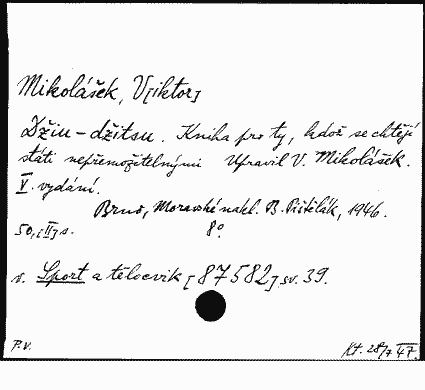 Mikolášek, V[iktor]
Džiu-džitsu. Kniha pro ty, kdož se chtějí
státi nepřemožitelnými Upravil V. Mikolášek.
V. vydání.
Brno, Moravské nakl. B. Pištělák, 1946.
50,[II] s. 8°
v. Sport a tělocvik [87582] sv. 39.
P.V. Kt. 28/7 47.